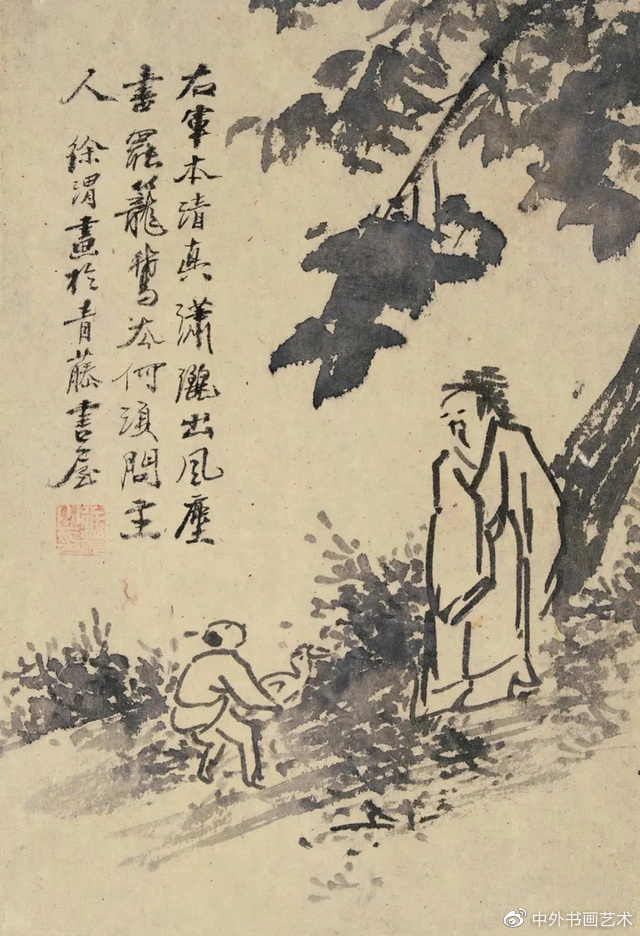 右軍本清真瀟灑出風塵
書罷籠鵞去何須問主
人 徐渭畫於青藤書屋
中外书画艺术